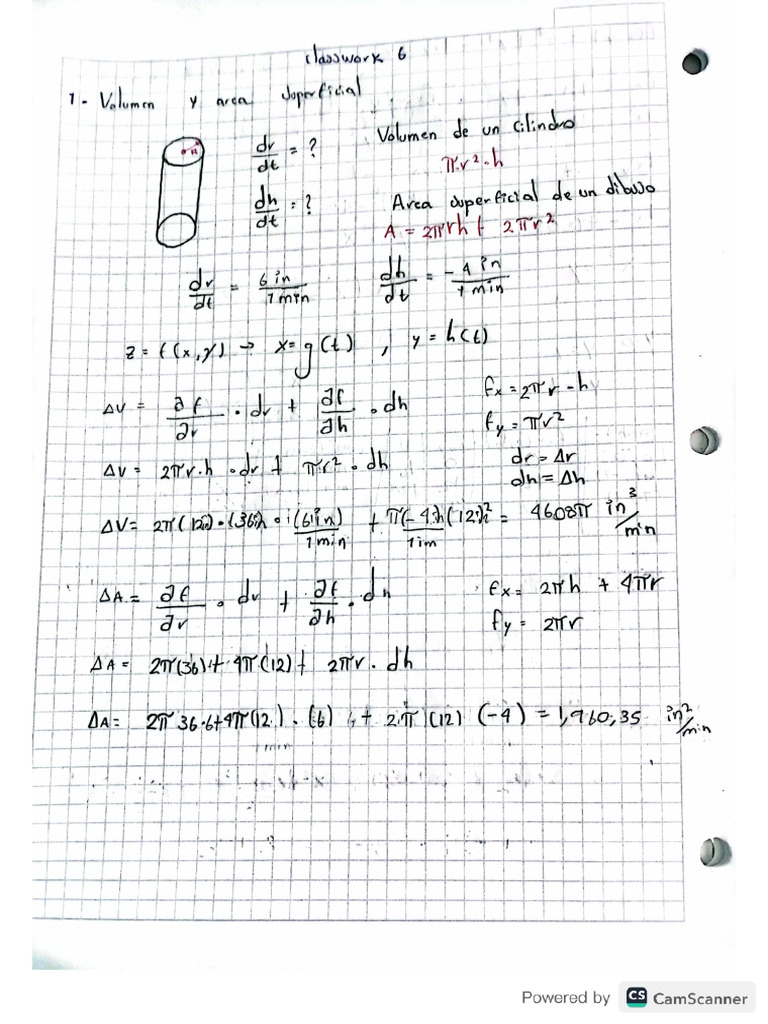 classwork 6
1- Volumen y area superficial
dr/dt = ? Volumen de un cilindro
πr²·h
dh/dt = ? Area superficial de un dibujo
A = 2πrh + 2πr²
dr/dt = 6 in/1 min dh/dt = -4 in/1 min
z = f(x,y) → x = g(t) , y = h(t)
ΔV = ∂f/∂r · dr + ∂f/∂h · dh fx = 2πr·h
fy = πr²
ΔV = 2πr·h · dr + πr² · dh dr = Δr
dh = Δh
ΔV = 2π(12in)·(36in)·(6in)/1min + π(-4in)(12in)²/1im = 4608π in³/min
ΔA = ∂f/∂r · dr + ∂f/∂h · dh fx = 2πh + 4πr
fy = 2πr
ΔA = 2π(36) + 4π(12) + 2πr · dh
ΔA = 2π 36·6+4π(12)·(6) + 2π(12)(-4) = 1,960,35 in²/min
Powered by CS CamScanner